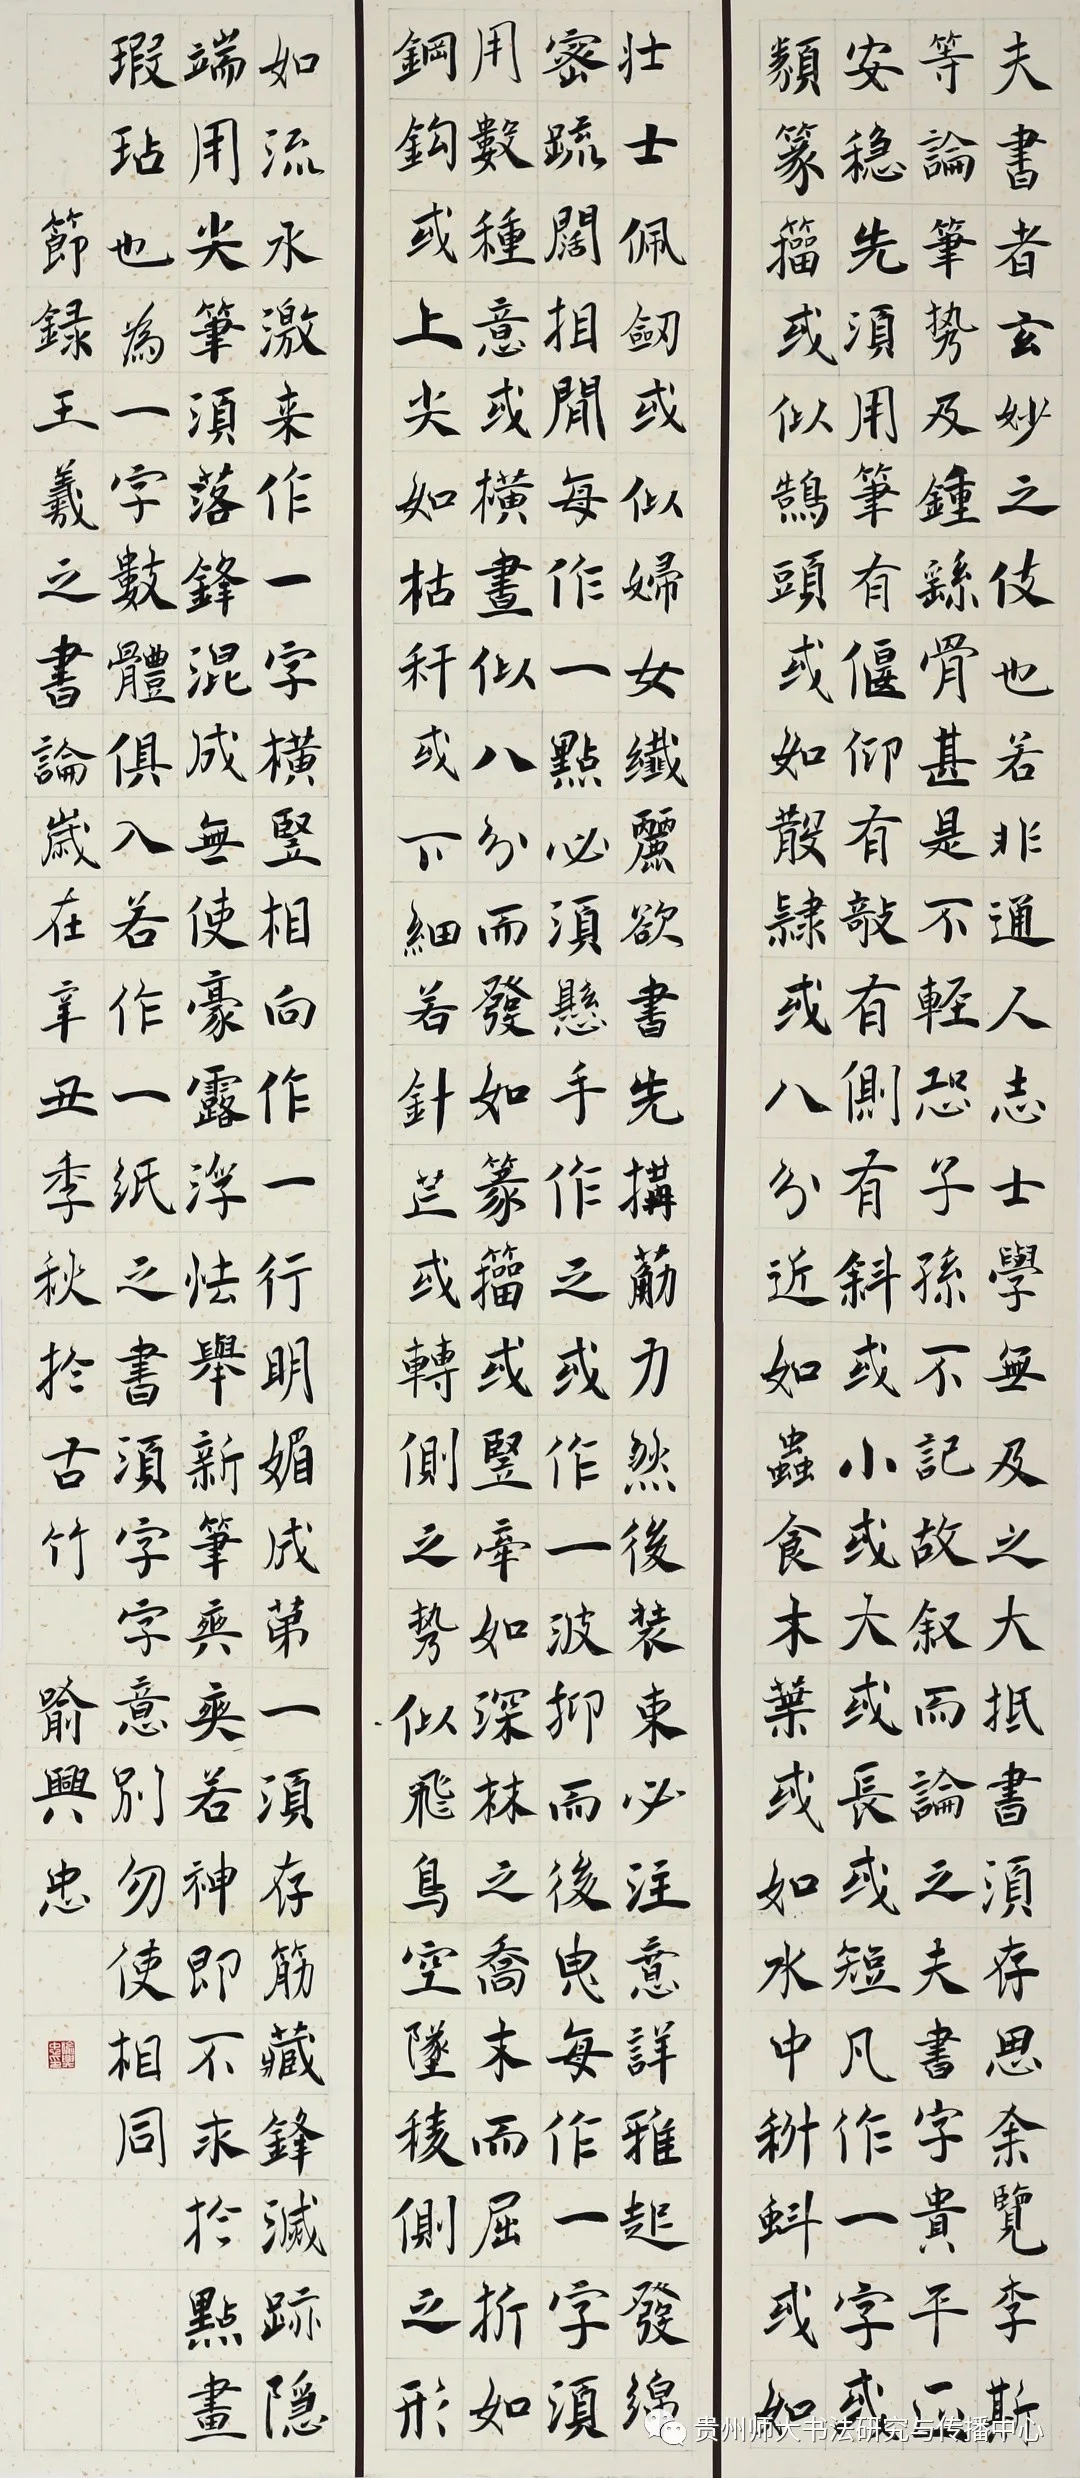 夫書者玄妙之伎也若非通人志士學無及之大抵書須存思余覽李斯
等論筆勢及鍾繇骨甚是不輕恐子孫不記故叙而論之夫書字貴平正
安稳先須用筆有偃仰有敧有側有斜或小或大或長或短凡作一字或
類篆籀或似鵠頭或如散隸或八分近如蟲食木葉或如水中科蚪或如
壯士佩劒或似婦女纖麗欲書先搆筋力然後裝束必注意詳雅起發綿
密疏闊相間每作一點必須懸手作之或作一波抑而後曳每作一字須
用數種意或橫畫似八分而發如篆籀或豎牽如深林之喬木而屈折如
鋼鉤或上尖如枯秆或下細若針芒或轉側之勢似飛鳥空墜稜側之形
如流水激来作一字橫豎相向作一行明媚成第一須存筋藏鋒滅跡隱
端用尖筆須落鋒混成無使豪露浮怯舉新筆爽爽若神即不求於點畫
瑕玷也為一字數體俱入若作一紙之書須字字意別勿使相同
節録王羲之書論歲在辛丑季秋於古竹 喻興忠
贵州师大书法研究与传播中心